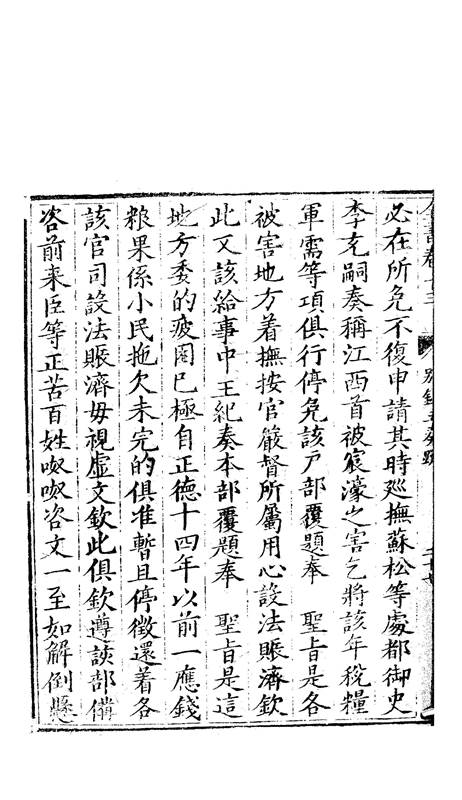 必在所免不復申請其時廵撫蘇松等處都御史
李克嗣奏稱江西首被宸濠之害乞將該年稅糧
軍需等項俱行停免該戸部覆題奉　聖旨是各
被害地方着撫按官嚴督所屬用心設法賑濟欽
此又該給事中王紀奏本部覆題奉　聖旨是這
地方委的疲困已極自正德十四年以前一應錢
粮果係小民拖欠未完的俱准暫且停徵還着各
該官司設法賑濟毋視虛文欽此俱欽遵該部備
咨前来臣等正苦百姓呶呶咨文一至如解倒懸